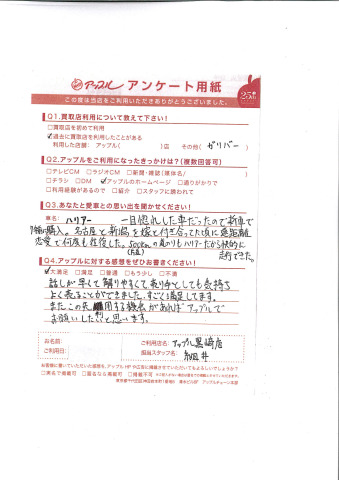 アップル アンケート用紙
この度は当店をご利用いただきありがとうございました。
Q1.買取店利用について教えて下さい!
□買取店を初めて利用
☑過去に買取店を利用したことがある
利用した店舗: アップル( )店 その他( ガリバー )
Q2.アップルをご利用になったきっかけは?(複数回答可)
□テレビCM □ラジオCM □新聞・雑誌(媒体名/ )
□チラシ □DM ☑アップルのホームページ □通りがかりで
□利用経験があるので □紹介 □スタッフに誘われて
Q3.あなたと愛車との思い出を聞かせください!
車名: ハリアー 一目惚れした車だったので新車で
購入。名古屋と新潟を嫁と付き合ってた頃に遠距離
恋愛で何度も往復した。500kmの道のりもハリアーだから快適に
(片道) 走行できた。
Q4.アップルに対する感想をぜひお書きください!
☑大満足 □満足 □普通 □もう少し □不満
話しが早くて解りやすくて売り方としても気持ち
よく売ることができました。すごく満足してます。
またこの先利用する機会があればアップルで
お願いしたいと思います。
お名前:
ご利用日:
ご利用店名: アップル黒崎店
担当スタッフ名: 細井
お客様に書いていただいた感想を、アップルHPや広告に掲載させていただいてもよろしいでしょうか?
□実名で掲載可 □匿名なら掲載可 □掲載不可